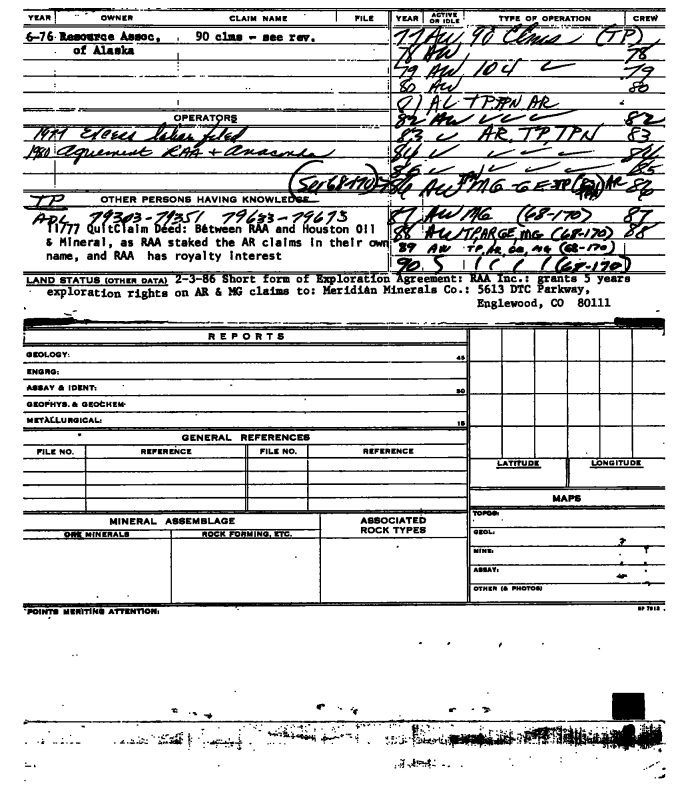 YEAR OWNER CLAIM NAME FILE YEAR ACTIVE OR IDLE TYPE OF OPERATION CREW
6-76 Resource Assoc, 90 clms - see rev. 77 AW 90 Clms (TP)
of Alaska 78 AW 78
79 AW 104 ✓ 79
80 AW 80
81 AL TP TPN AR
OPERATORS 82 AW ✓ ✓ ✓ 82
1977 Excess labor filed 83 ✓ AR, TP TPN 83
1980 Agreement RAA + Anaconda 84 ✓ ✓ ✓ ✓ 84
85 ✓ ✓ ✓ ✓ 85
(See 68-170) 86 AW TPN MG GE TP AR 86
TP OTHER PERSONS HAVING KNOWLEDGE
ADL 79303-79351 79633-79673 87 AW MG (68-170) 87
11777 QuitClaim Deed: Between RAA and Houston Oil 88 AW TP AR GE MG (68-170) 88
& Mineral, as RAA staked the AR claims in their own 89 AW TP, AR, GE, MG (68-170)
name, and RAA has royalty interest 90 S (68-170)
LAND STATUS (OTHER DATA) 2-3-86 Short form of Exploration Agreement: RAA Inc.: grants 5 years
exploration rights on AR & MG claims to: Meridian Minerals Co.: 5613 DTC Parkway,
Englewood, CO 80111
REPORTS
GEOLOGY: 45
ENGRG:
ASSAY & IDENT: 30
GEOPHYS. & GEOCHEM
METALLURGICAL: 15
GENERAL REFERENCES
FILE NO. REFERENCE FILE NO. REFERENCE
LATITUDE LONGITUDE
MAPS
MINERAL ASSEMBLAGE ASSOCIATED ROCK TYPES
ORE MINERALS ROCK FORMING, ETC.
TOPOG:
GEOL:
MINE:
ASSAY:
OTHER (& PHOTOS)
POINTS MERITING ATTENTION: